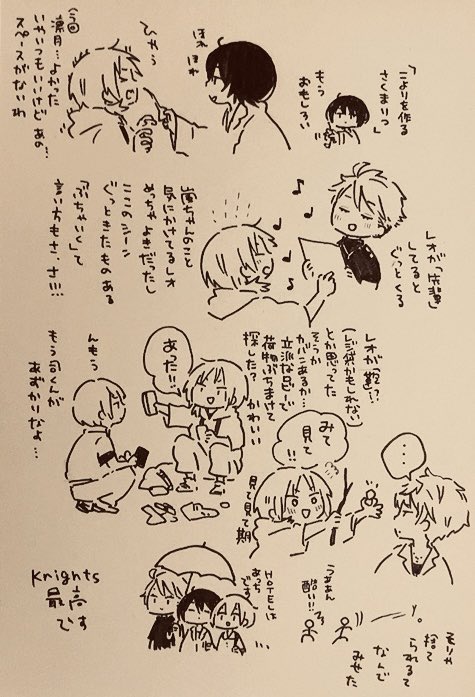 「こよりを作る
さくまりつ」
もう
おもしろい
ほれ
ほれ
ひゃら
凛月…よかった
いやいつもいいけどあの
スペースがないわ
レオが「先輩」
してると
ぐっとくる
嵐ちゃんのこと
気にかけてるレオ
めっちゃよきだったし
ここのシーン
ぐっときたものある
「ぶちゃいく」て
言い方もさ、さ!!!
レオが鞄!?
(レジ袋かもしれない)
とか思ってた
そうか
カバンあるか…
立派な足で
荷物ぶちまけて
探した?
かわいい
あった!!
んもう
もう司くんが
あずかりなよ…
みて
見て
!!
見て見て期
…
そりゃ
捨て
られるて
なんで
みせた
うああん
酷い!!
HOTELは
あっち
です
Knights
最高
です